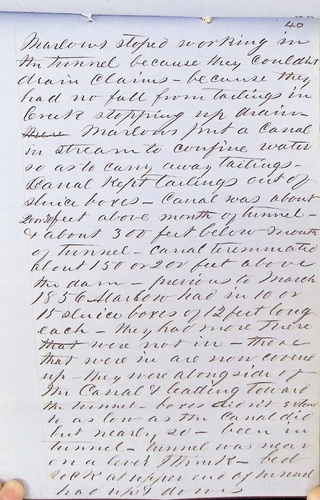 40
Marlows stoped working in
the tunnel because they couldnt
drain claims - because they
had no fall from tailings in
Creek stopping up drain -
Marlows put a Canal
in stream to confine water
so as to carry away tailings -
Canal Kept tailings out of
sluice boxes - Canal was about
feet above mouth of tunnel -
& about 300 feet below mouth
of tunnel - canal terminated
about 150 or 200 feet above
the dam - previous to March
1856 Marlow had in 10 or
15 sluice boxes of 12 feet long
each - they had more there
that were not in - those
that were in are now covered
up - they were alongside of
the Canal & leading toward
the tunnel - boxes did nt extend
to as low as the Canal did
but nearly so - been in
tunnel - tunnel was near
on a level I think - bed
rock at upper end of tunnel
had